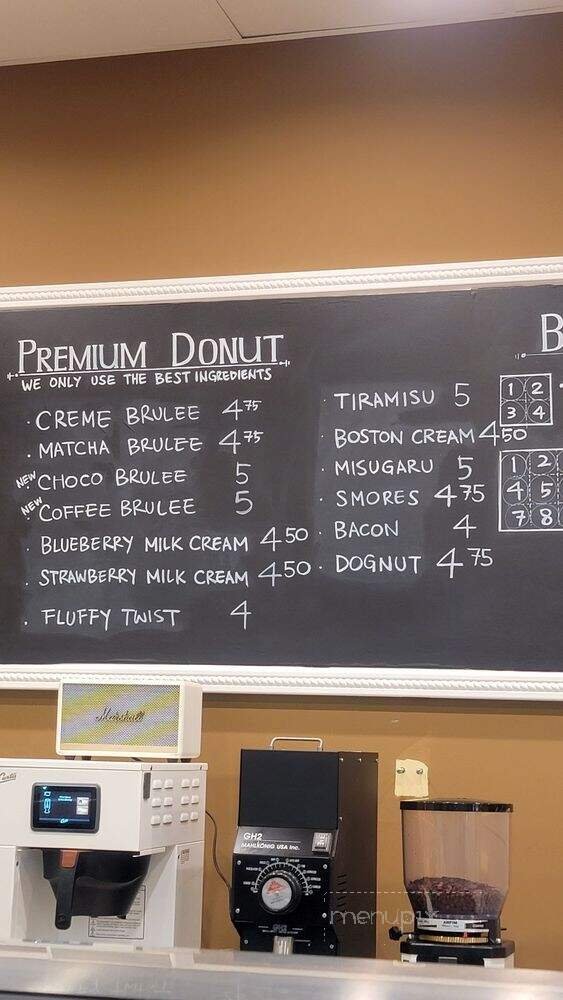 PREMIUM DONUT
WE ONLY USE THE BEST INGREDIENTS
· CREME BRULEE 4 75
· MATCHA BRULEE 4 75
NEW · CHOCO BRULEE 5
NEW · COFFEE BRULEE 5
· BLUEBERRY MILK CREAM 4 50
· STRAWBERRY MILK CREAM 4 50
· FLUFFY TWIST 4
· TIRAMISU 5
· BOSTON CREAM 4 50
· MISUGARU 5
· SMORES 4 75
· BACON 4
· DOGNUT 4 75
B
1 2
3 4
1 2
4 5
7 8
Marshall
Curtis
GH2
MAHLKÖNIG USA Inc.
menupix